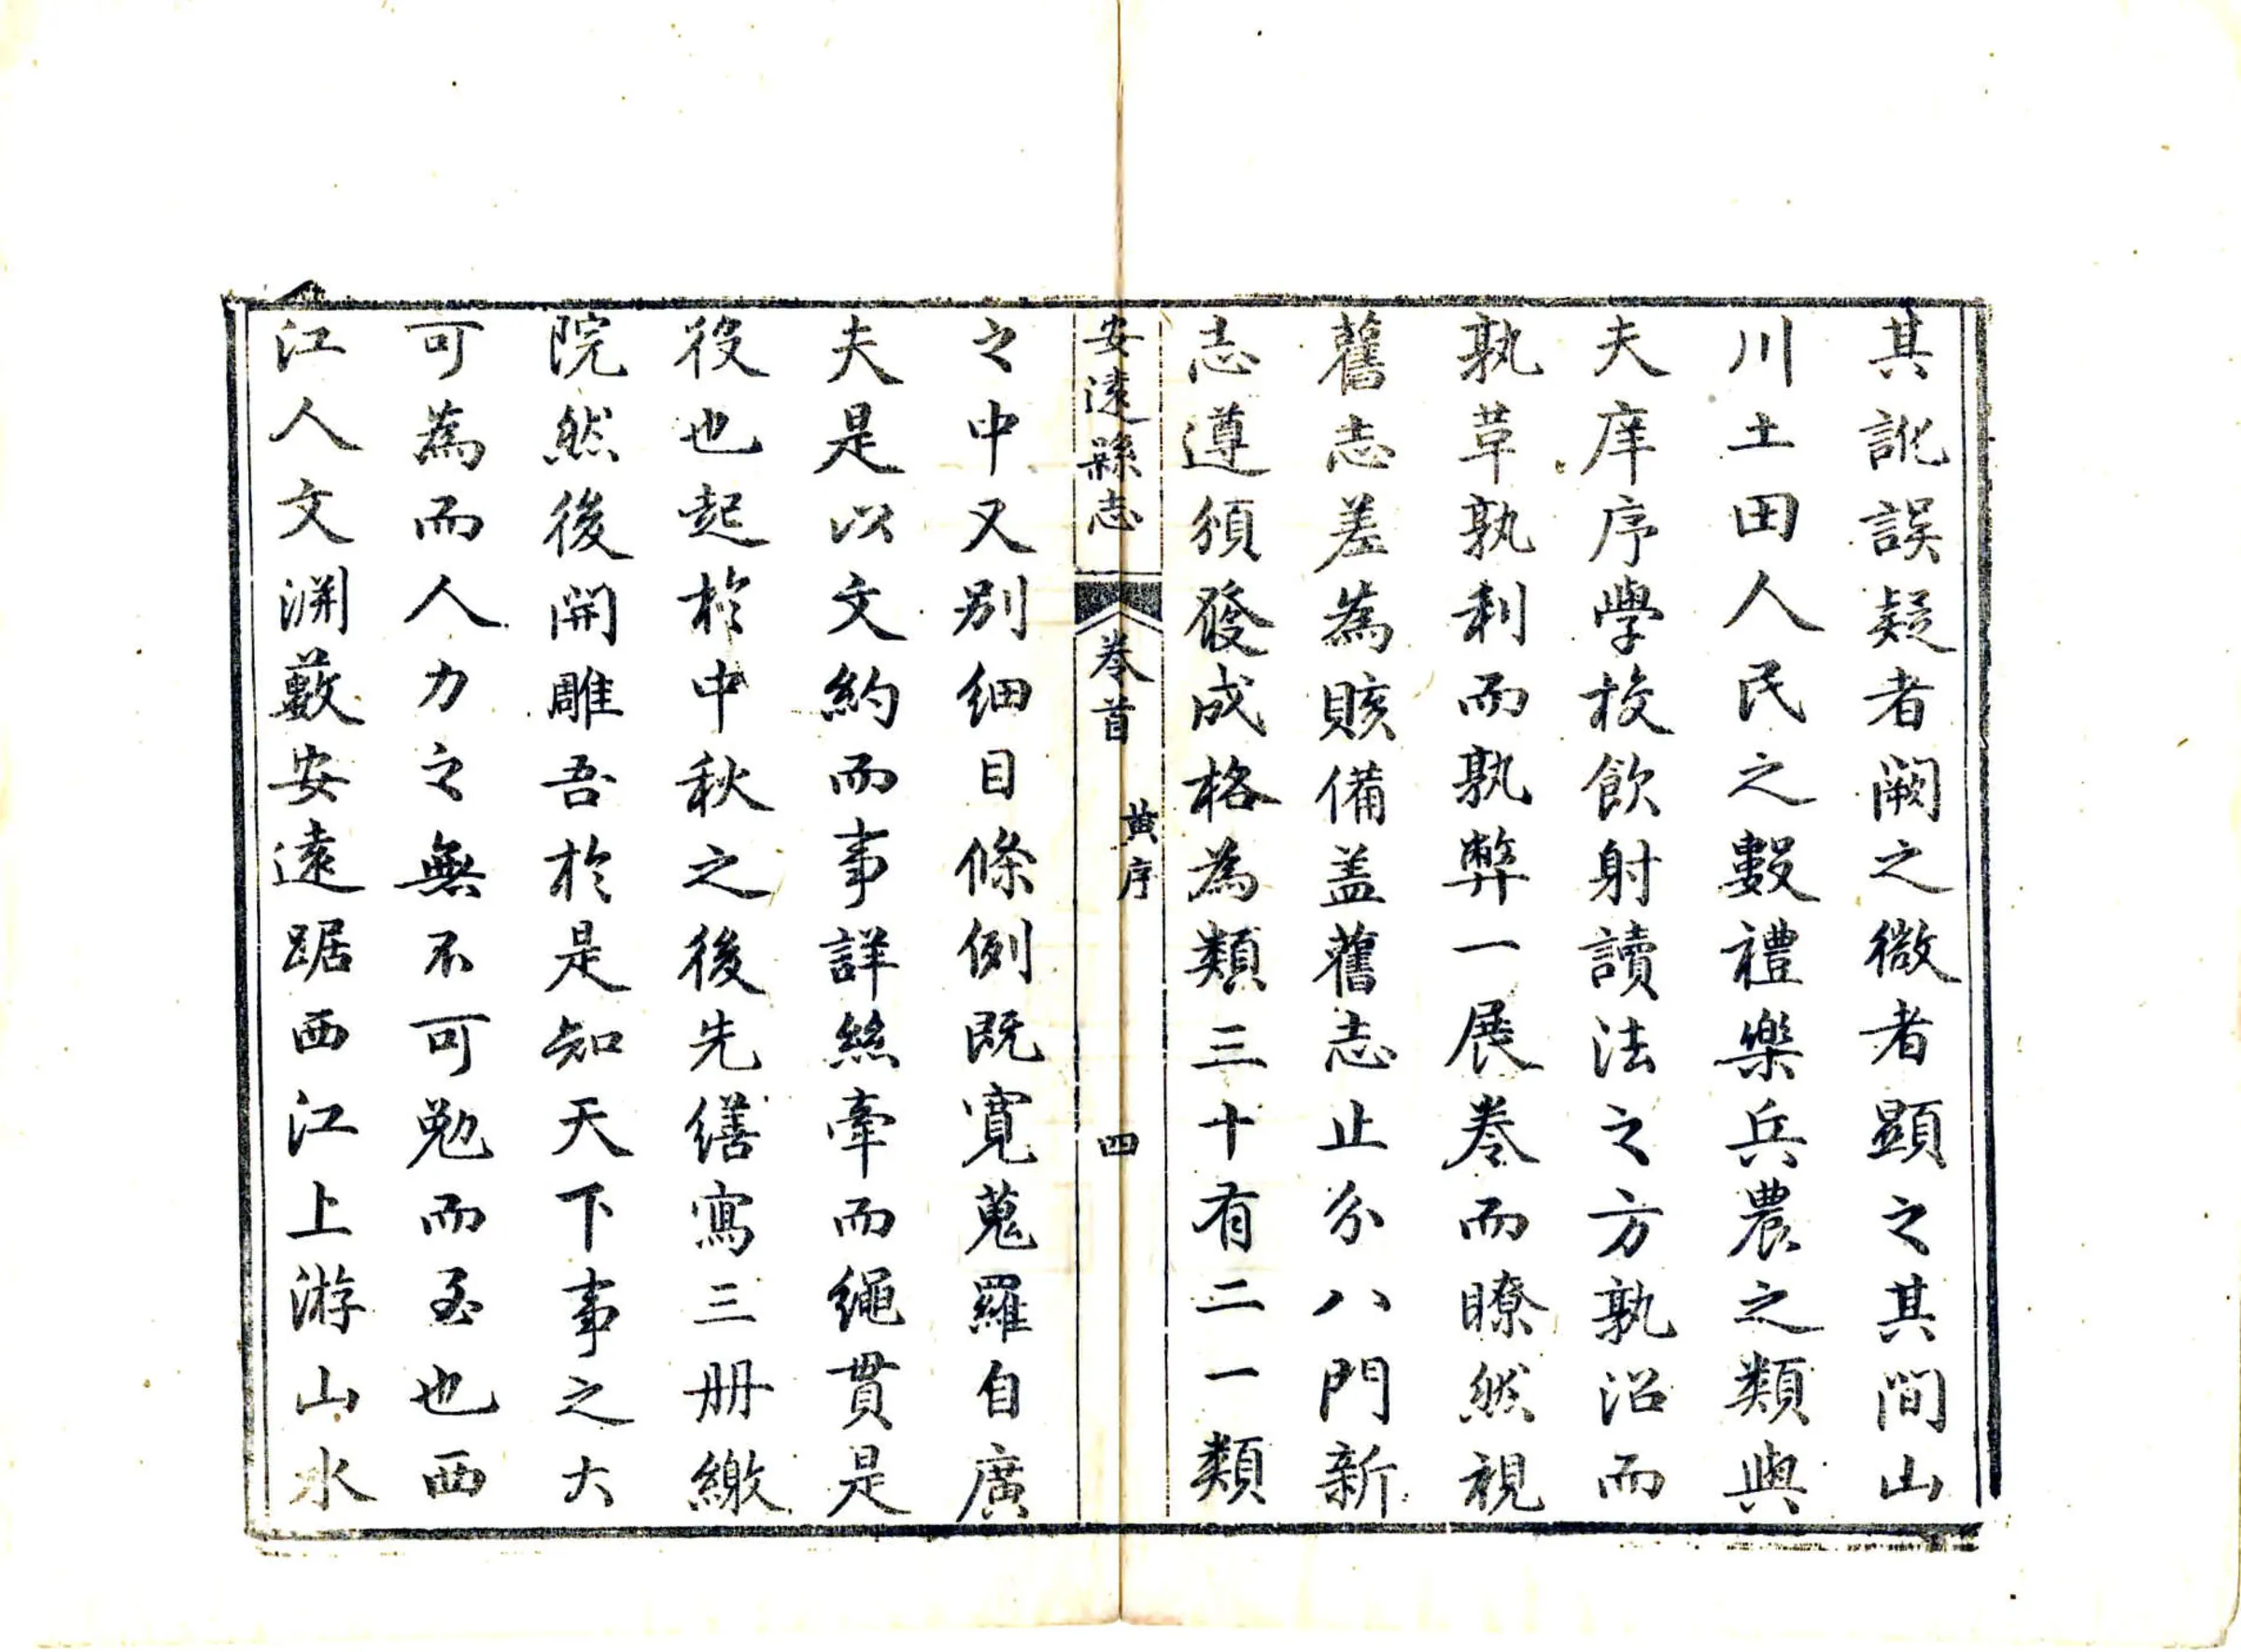 其訛誤疑者闕之微者顯之其間山
川土田人民之數禮樂兵農之類與
夫庠序學校飲射讀法之方孰沿而
孰革孰利而孰弊一展卷而瞭然視
舊志差為賅備盖舊志止分八門新
志遵頒發成格為類三十有二一類
安遠縣志
卷首
黄序
四
之中又別細目條例既寬蒐羅自廣
夫是以文約而事詳絲牽而繩貫是
役也起於中秋之後後先繕寫三册繳
院然後開雕吾於是知天下事之大
可為而人力之無不可勉而至也西
江人文渊藪安遠踞西江上游山水